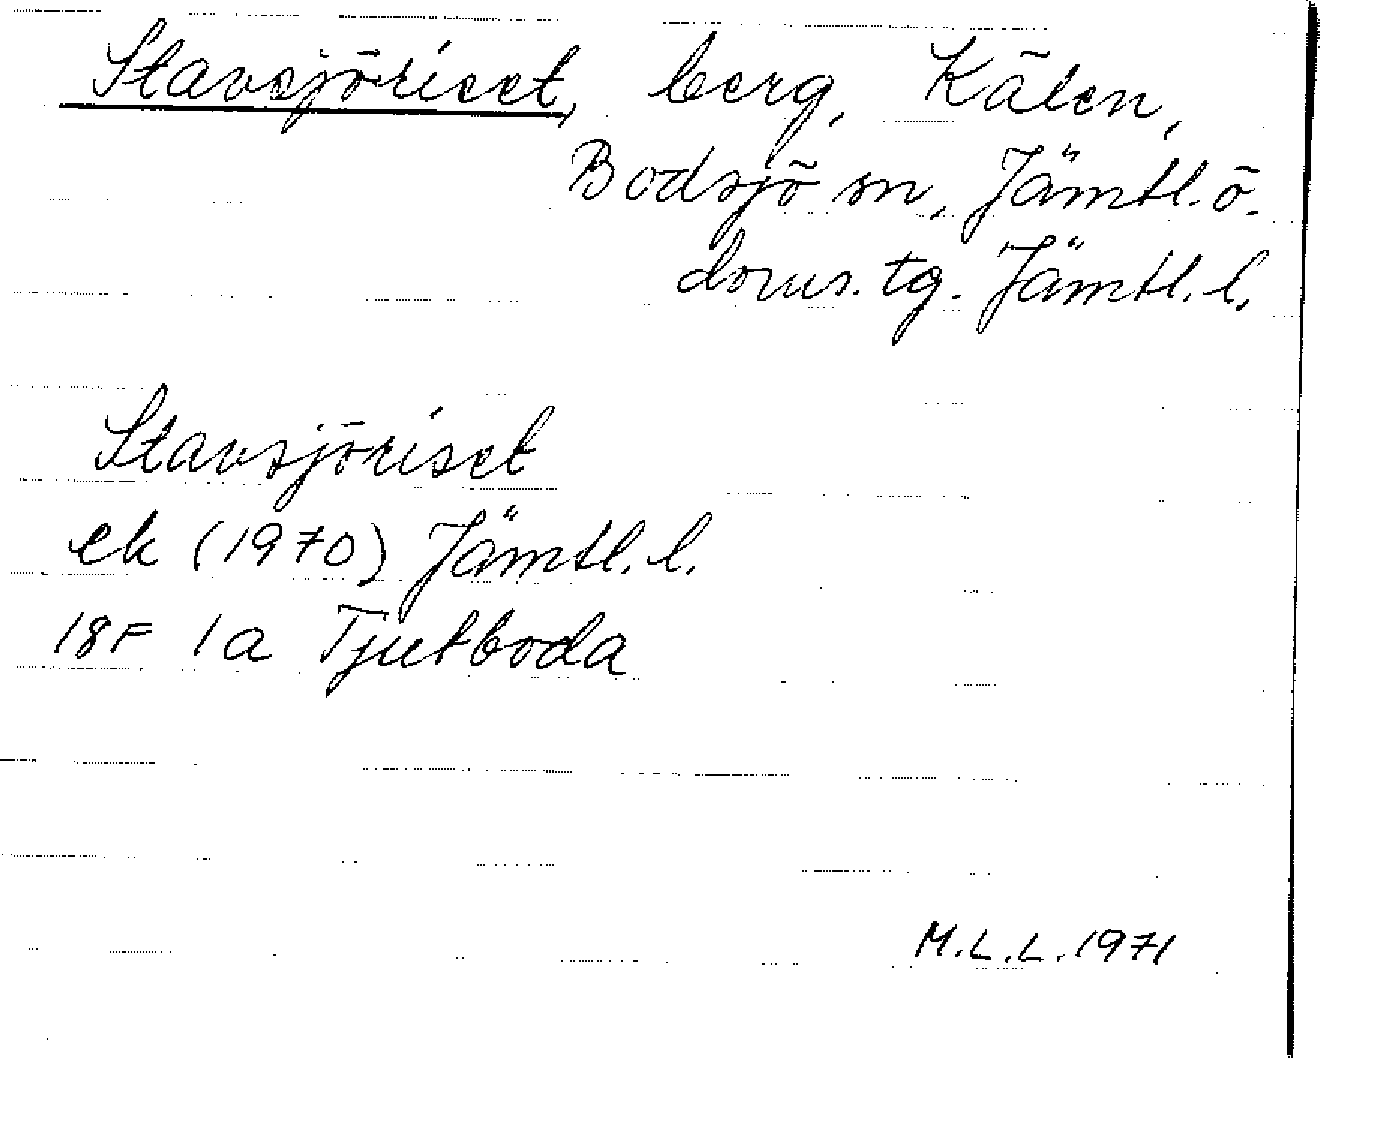 Stavsjöriset, berg, Kälen,
Bodsjö sn, Jämtl. ö.
doms. tg. Jämtl. l.
Stavsjöriset
ek (1970) Jämtl. l.
18F 1a Tjutboda
M.L.L. 1971